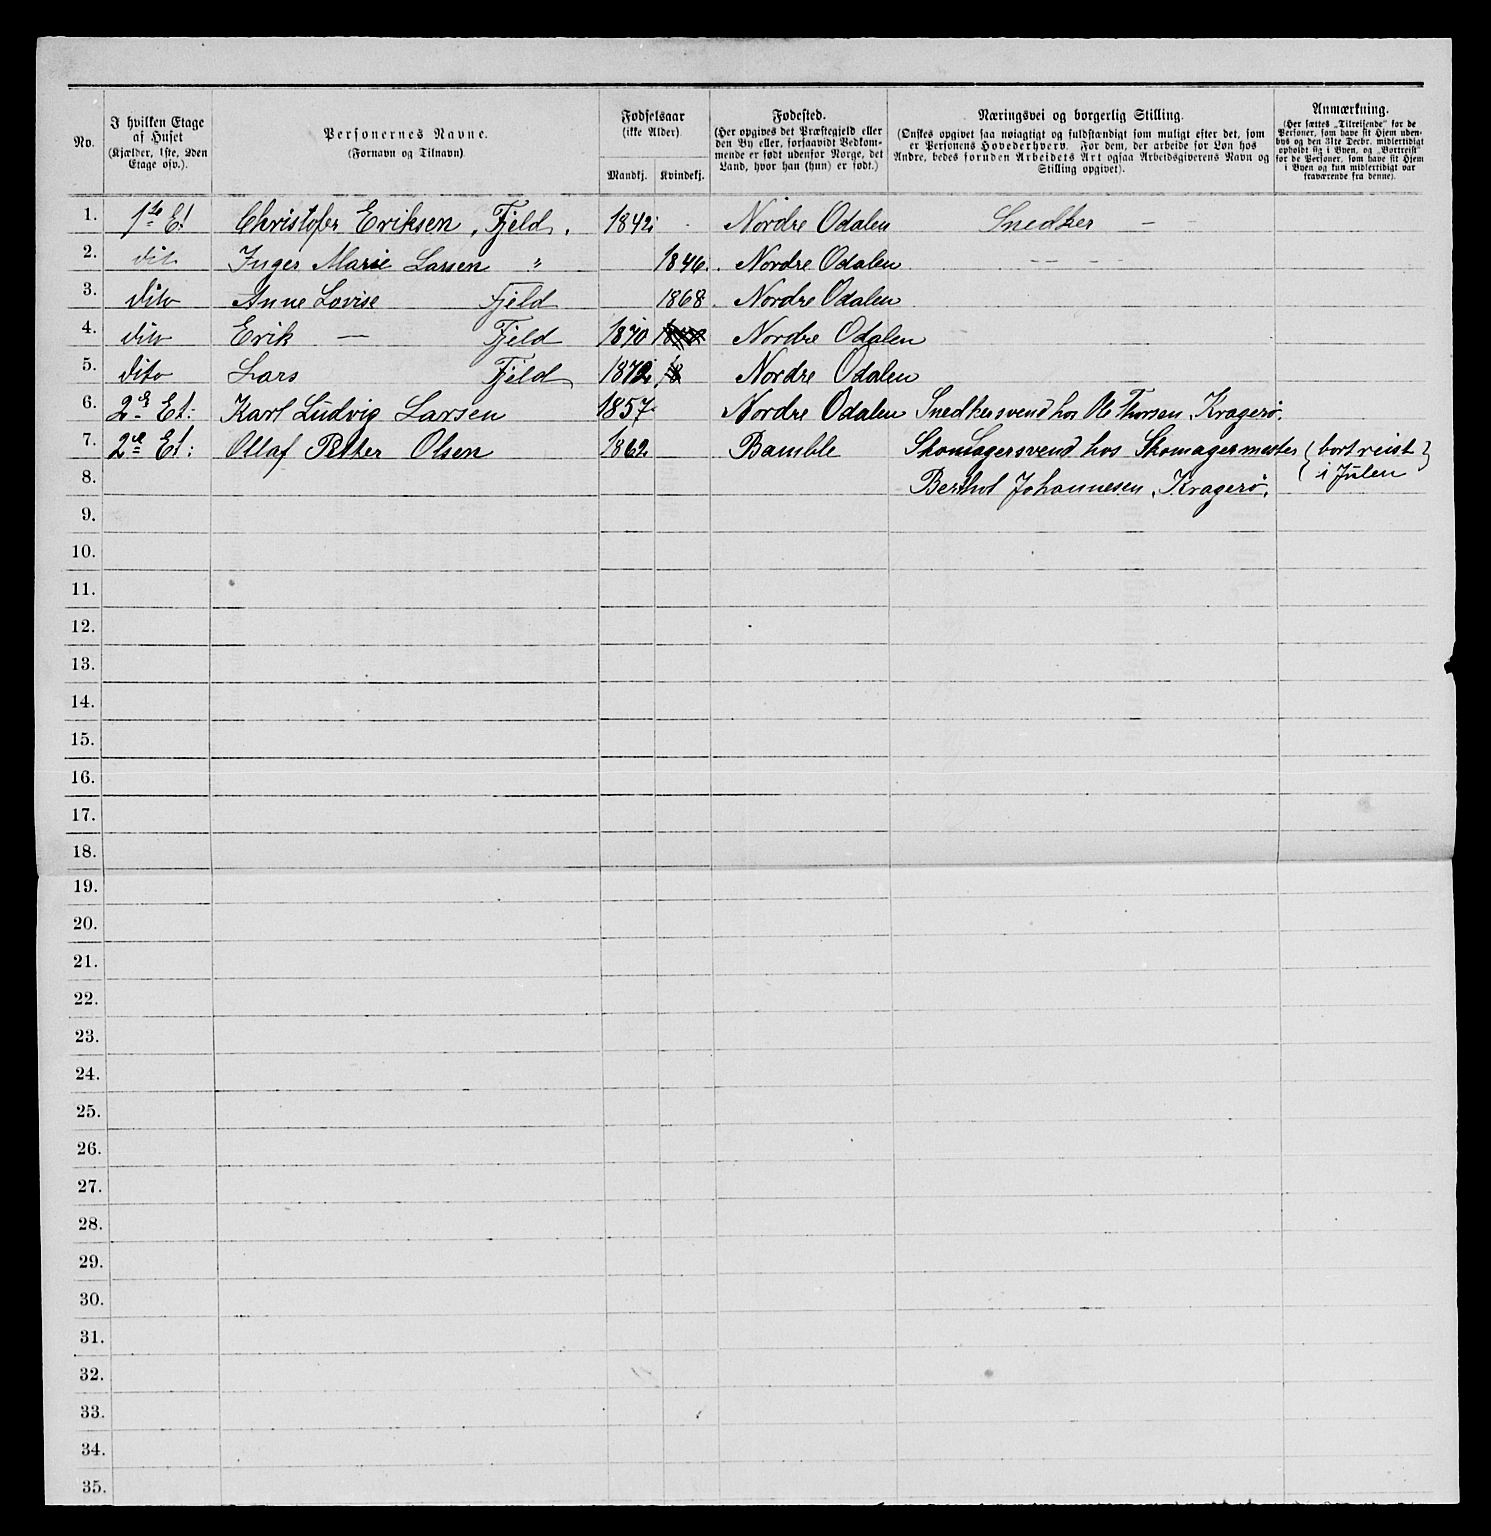 No.
I hvilken Etage
af Huset
(Kjælder, 1ste, 2den
Etage osv.).
Personernes Navne.
(Fornavn og Tilnavn)
Fødselsaar
(ikke Alder).
Mandkj. Kvindekj.
Fødested.
(Her opgives det Præstegjeld eller
den By eller, forsaavidt Vedkom-
mende er født udenfor Norge, det
Land, hvor han (hun) er født.)
Næringsvei og borgerlig Stilling.
(Ønskes opgivet saa nøiagtigt og fuldstændigt som muligt efter det, som
er Personens Hovederhverv. For dem, der arbeide for Løn hos
Andre, bedes foruden Arbeidets Art ogsaa Arbeidsgiverens Navn og
Stilling opgivet).
Anmærkning.
(Her sættes „Tilreisende“ for de
Personer, som have sit Hjem uden-
bys og den 31te Decbr. midlertidigt
opholdt sig i Byen, og „Bortreist“
for de Personer, som have sit Hjem
i Byen og kun midlertidigt var
fraværende fra denne).
1. 1ste Et Christofer Eriksen, Fjeld. 1842. Nordre Odalen Snedker —
2. dit Inger Marie Larsen " 1846. Nordre Odalen — — — —
3. dito Anne Lovise Fjeld 1868. Nordre Odalen
4. dito Erik — Fjeld 1870 Nordre Odalen
5. dito Lars Fjeld 1872 18 Nordre Odalen
6. 2den Et: Karl Ludvig Larsen 1857. Nordre Odalen Snedkersvend hos Thorsen, Kragerø.
7. 2den Et: Ollaf Petter Olsen 1862 Bamble Skomagersvend hos Skomagermester (bortreist)
8. Berthol Johannesen, Kragerø. i Julen
9.
10.
11.
12.
13.
14.
15.
16.
17.
18.
19.
20.
21.
22.
23.
24.
25.
26.
27.
28.
29.
30.
31.
32.
33.
34.
35.